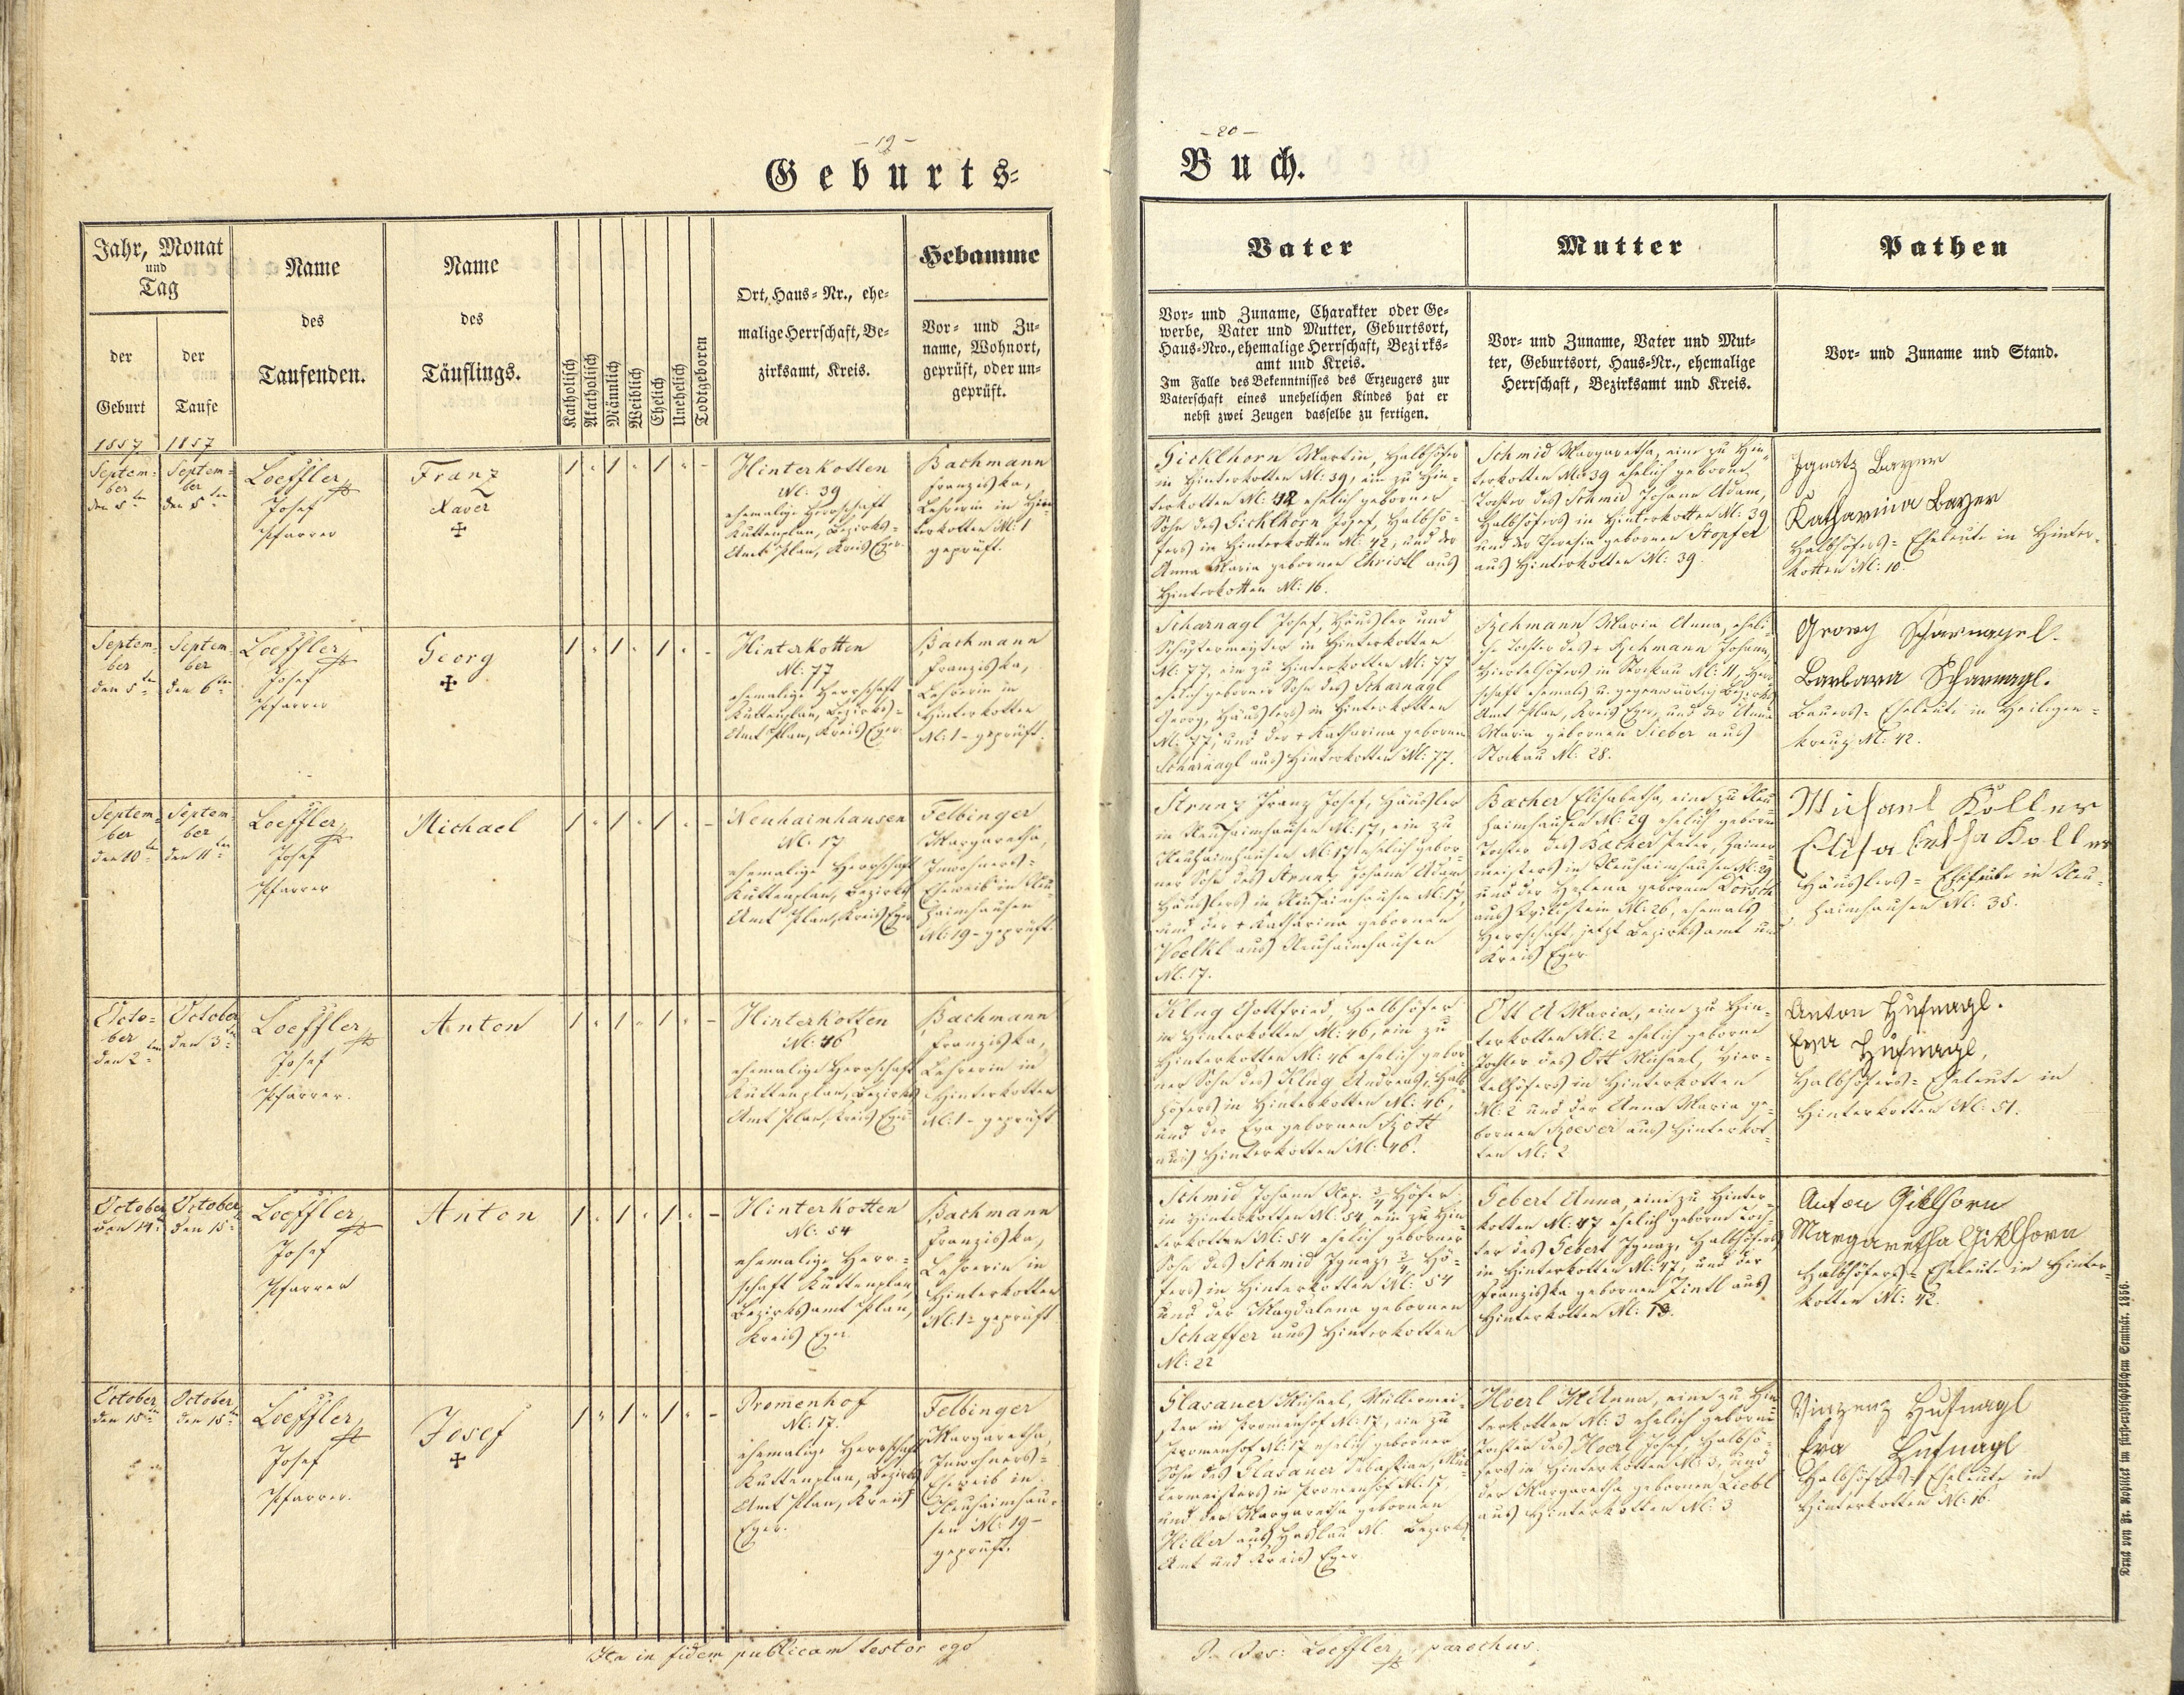 - 19 -
Geburts=
Jahr, Monat
und
Tag
der
Geburt
der
Taufe
1857
1857
Name
des
Taufenden.
Name
des
Täuflings.
Katholisch
Akatholisch
Männlich
Weiblich
Ehelich
Unehelich
Todtgeboren
Ort, Haus=Nr., ehe=
malige Herrschaft, Be=
zirksamt, Kreis.
Hebamme
Vor= und Zu=
name, Wohnort,
geprüft, oder un=
geprüft.
Septem=
ber
den 5ten
Septem=
ber
den 5ten
Loeffler
Josef
Pfarrer
Franz
Xaver
Hinterkotten
N: 39
ehemalige Herrschaft
Kuttenplan, Bezirks=
Amt Plan, Kreis Eger.
Bachmann
Franziska,
Lehrerin in Hin=
terkotten N: 1
geprüft.
Septem=
ber
den 5ten
Septem
ber
den 6ten
Loeffler
Josef
Pfarrer
Georg
Hinterkotten
N: 77
ehemalige Herrschaft
Kuttenplan, Bezirks=
Amt Plan, Kreis Eger.
Bachmann
Franziska,
Lehrerin in
Hinterkotten
N: 1 - geprüft.
Septem=
ber
den 10ten
Septem
ber
den 11ten
Loeffler
Josef
Pfarrer
Michael
Neuhaimhausen
N: 17
ehemalige Herrschaft
Kuttenplan, Bezirks
Amt Plan, Kreis Eger
Felbinger
Margaretha,
Inwohners=
Eheweib in Neu=
haimhausen
N: 19 - geprüft.
Octo=
ber
den 2ten
October
den 3ten
Loeffler
Josef
Pfarrer.
Anton
Hinterkotten
N: 46
ehemalige Herrschaft
Kuttenplan, Bezirks
Amt Plan, Kreis Eger
Bachmann
Franziska,
Lehrerin in
Hinterkotten
N: 1 - geprüft
October
den 14ten
October
den 15ten
Loeffler
Josef
Pfarrer
Anton
Hinterkotten
N: 54
ehemalige Herr=
schaft Kuttenplan,
Bezirksamt Plan,
Kreis Eger.
Bachmann
Franziska,
Lehrerin in
Hinterkotten
N: 1 - geprüft
October
den 15ten
October
den 15ten
Loeffler
Josef
Pfarrer.
Josef
Promenhof
N: 17.
ehemalige Herrschaft
Kuttenplan, Bezirks
Amt Plan, Kreis
Eger.
Felbinger
Margaretha,
Inwohners=
Eheweib in
Neuhaimhau=
sen N: 19 -
geprüft.
Ita in fidem publicam testor ego
- 20 -
Buch.
Vater
Vor= und Zuname, Charakter oder Ge=
werbe, Vater und Mutter, Geburtsort,
Haus=Nro., ehemalige Herrschaft, Bezirks=
amt und Kreis.
Im Falle des Bekenntnisses des Erzeugers zur
Vaterschaft eines unehelichen Kindes hat er
nebst zwei Zeugen dasselbe zu fertigen.
Mutter
Vor= und Zuname, Vater und Mut=
ter, Geburtsort, Haus=Nr., ehemalige
Herrschaft, Bezirksamt und Kreis.
Pathen
Vor= und Zuname und Stand.
Gicklhorn Martin, Halbhöfer
in Hinterkotten N: 39, ein zu Hin=
terkotten N: 42 ehelich geborner
Sohn des Gicklhorn Josef, Halbhö=
fers in Hinterkotten N: 42, und der
Anna Maria gebornen Christl aus
Hinterkotten N: 16.
Schmid Margaretha, eine zu Hin=
terkotten N: 39 ehelich geborne
Tochter des Schmid Johann Adam,
Halbhöfers in Hinterkotten N: 39
und der Theresia gebornen Stopfer
aus Hinterkotten N: 39.
Ignatz Bayer
Katharina Bayer
Halbhöfers=Eheleute in Hinter=
kotten N: 10.
Scharnagl Josef, Häusler und
Schustermeister in Hinterkotten
N: 77, ein zu Hinterkotten N: 77
ehelich geborner Sohn des Scharnagl
Georg, Häuslers in Hinterkotten
N: 77, und der + Katharina gebornen
Scharnagl aus Hinterkotten N: 77.
Maria Anna, eheli=
che Tochter des + Johann,
Viertelhöfers in Stockau N: 11, Herr
schaft ehemals u. gegenwärtig Bezirks
Amt Plan, Kreis Eger, und der Anna
Maria gebornen Sieber aus
Stockau N: 28.
Georg Scharnagel.
Barbara Scharnagl.
Bauers=Eheleute in Heiligen=
kreuz N: 42.
Strunz Franz Josef, Häusler
in Neuhaimhausen N: 17, ein zu
Neuhaimhausen N: 17 ehelich gebor=
ner Sohn des Strunz Johann Adam
Häuslers in Neuhaimhausen N: 17,
und der + Katharina gebornen
Voelkl aus Neuhaimhausen
N: 17.
Bacher Elisabetha, eine zu Neu
haimhausen N: 29 ehelich geborne
Tochter des Bacher Peter,
meisters in Neuhaimhausen N: 29
und der Helena gebornen
aus N: 26, ehemals
Herrschaft, jetzt Bezirksamt und
Kreis Eger
Michael Koller
Elisabetha Koller
Häuslers=Eheleute in Neu=
haimhausen N: 35.
Klug Gottfried, Halbhöfer
in Hinterkotten N: 46, ein zu
Hinterkotten N: 46 ehelich gebor=
ner Sohn des Klug Andreas, Halb
höfers in Hinterkotten N: 46,
und der Eva gebornen
aus Hinterkotten N: 46.
Ott A Maria, eine zu Hin=
terkotten N: 2 ehelich geborne
Tochter des Ott Michael, Vier=
telhöfers in Hinterkotten
N: 2 und der Anna Maria ge=
bornen aus Hinterkot=
ten N: 2
Anton Hufnagl.
Eva Hufnagl,
Halbhöfers=Eheleute in
Hinterkotten N: 51.
Schmid Johann Nep. 3/4 Höfer
in Hinterkotten N: 54, ein zu Hin=
terkotten N: 54 ehelich geborner
Sohn des Schmid Ignaz, 3/4 Hö=
fers in Hinterkotten N: 54
und der Magdalena gebornen
Schaffer aus Hinterkotten
N: 22
Gebert Anna, eine zu Hinter=
kotten N: 47 ehelich geborne Toch=
ter des Gebert Ignaz, Halbhöfers
in Hinterkotten N: 47, und der
Franziska gebornen Zintl aus
Hinterkotten N: 13.
Anton Giklhorn
Margaretha Giklhorn
Halbhöfers=Eheleute in Hinter=
kotten N: 42.
Glasauer Michael, Müllermei=
ster in Promenhof N: 17, ein zu
Promenhof N: 17 ehelich geborner
Sohn des Glasauer Sebastian, Mül
lermeisters in Promenhof N: 17,
und der Margaretha gebornen
Hiller aus Haslau N: Bezirks
Amt und Kreis Eger
Hoerl M Anna, eine zu Hin
terkotten N: 3 ehelich geborne
Tochter des Hoerl Josef, Halbhö=
fers in Hinterkotten N: 3, und
der Margaretha gebornen Liebl
aus Hinterkotten N: 3
Vinzenz Hufnagl
Eva Hufnagl
Halbhöfers=Eheleute in
Hinterkotten N: 16.
P. Jos: Loeffler, parochus.
Druck von Fr. Rohliček im fürst=erzbischöflichem Seminär. 1856.